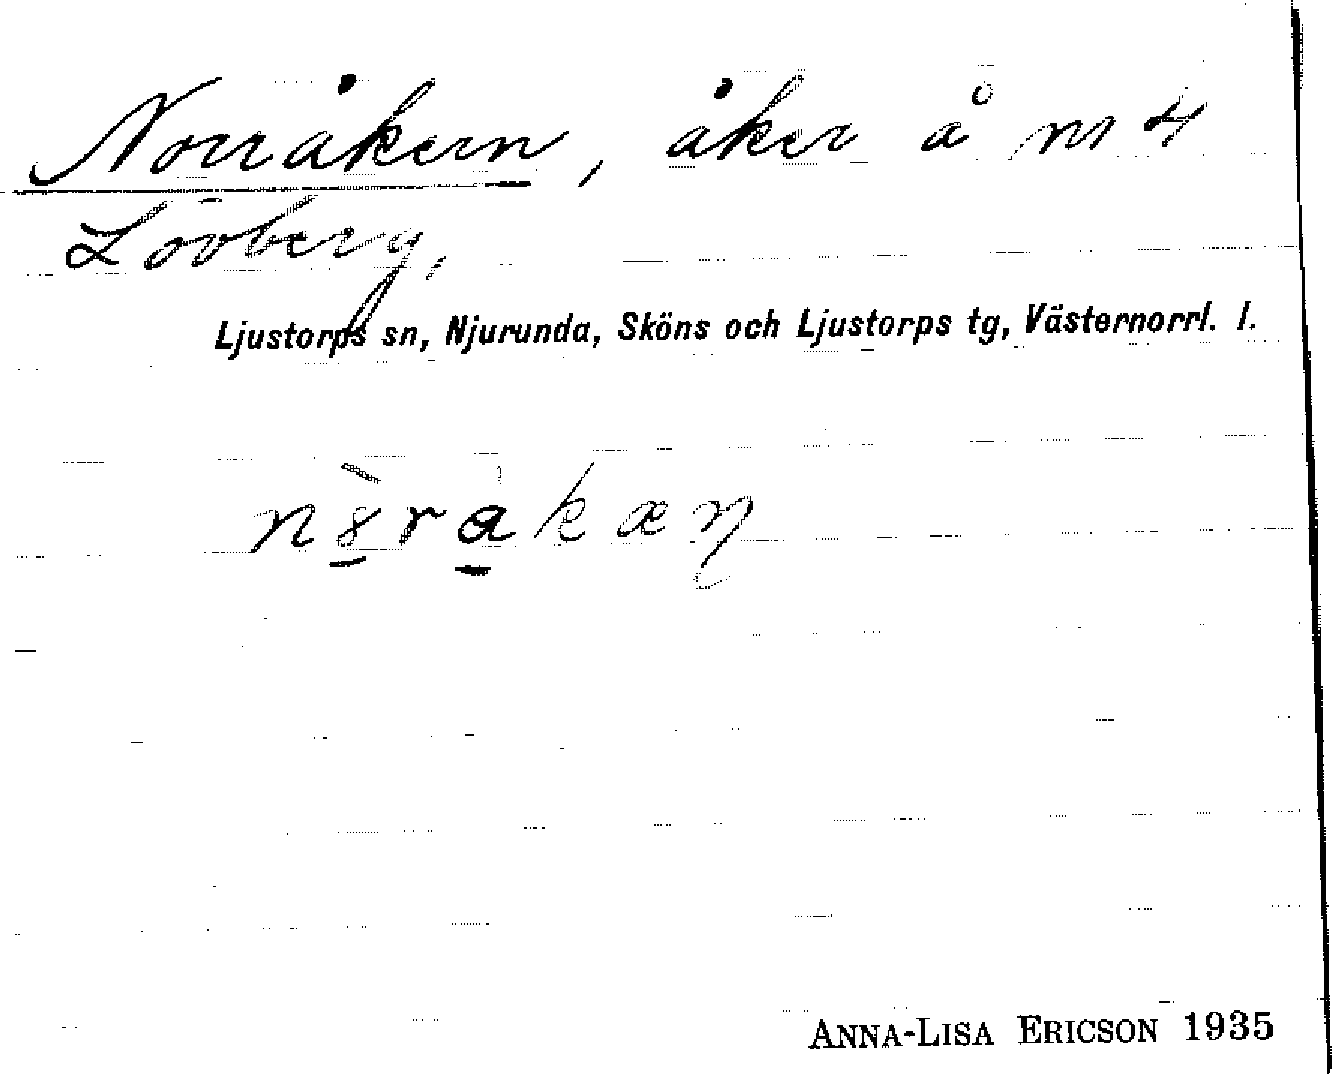 Norråkern, åker å nr 4
Lövberg,
Ljustorps sn, Njurunda, Sköns och Ljustorps tg, Västernorrl. l.
ANNA-LISA ERICSON 1935